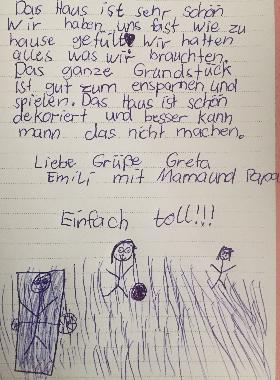 Das Haus ist sehr schön
Wir haben uns fast wie zu
hause gefült Wir hatten
alles was wir brauchten.
Das ganze Grundstück
ist gut zum enspannen und
spielen. Das Haus ist schön
dekoriert und besser kann
mann das nicht machen.
Liebe Grüße Greta
Emili mit Mama und Papa
Einfach toll!!!